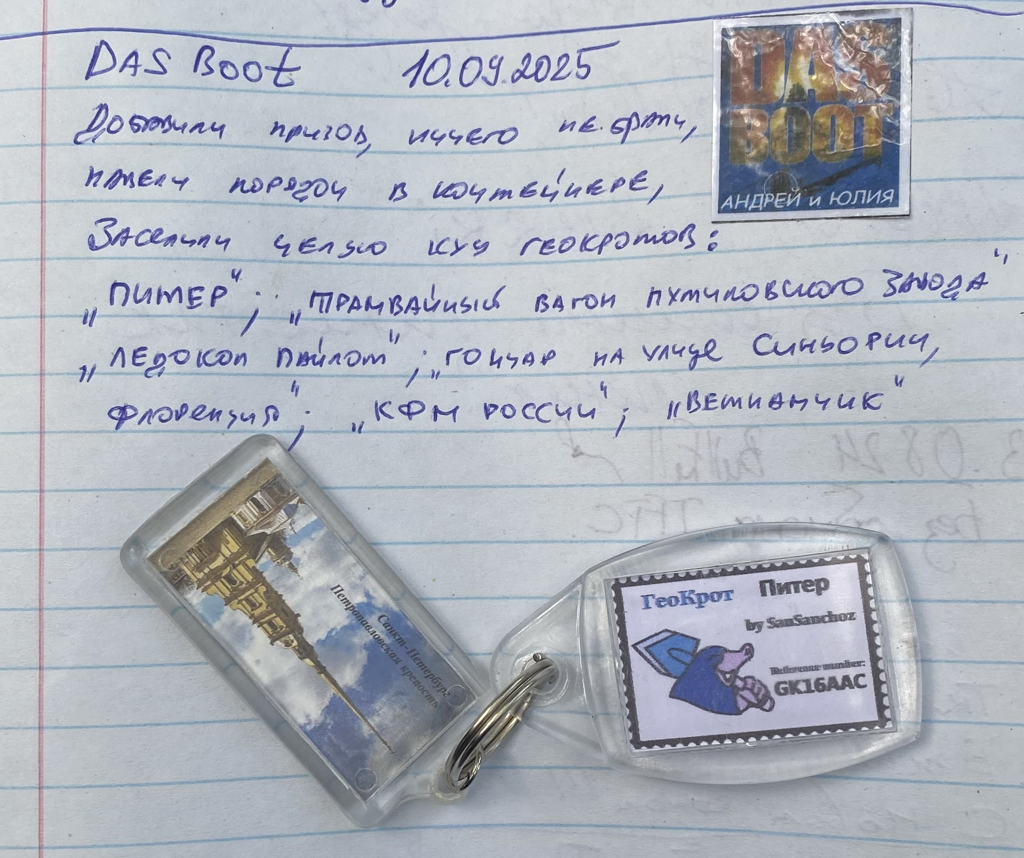 DAS Boot 10.09.2025
Добавили призов, ничего не брали,
навели порядок в контейнере,
Заселили целую кучу геокротов:
„ПИТЕР“; „ТРАМВАЙНЫЙ ВАГОН ПУТИЛОВСКОГО ЗАВОДА“
„ЛЕДОКОЛ ПАЙЛОТ“; „ГОНЧАР НА УЛИЦЕ СИНЬОРИИ,
ФЛОРЕНЦИЯ“; „КФМ РОССИИ“;
DAS
BOOT
АНДРЕЙ и ЮЛИЯ
Санкт-Петербург
Петропавловская крепость
ГеоКрот Питер
by SanSanchoz
Reference number:
GK16AAC